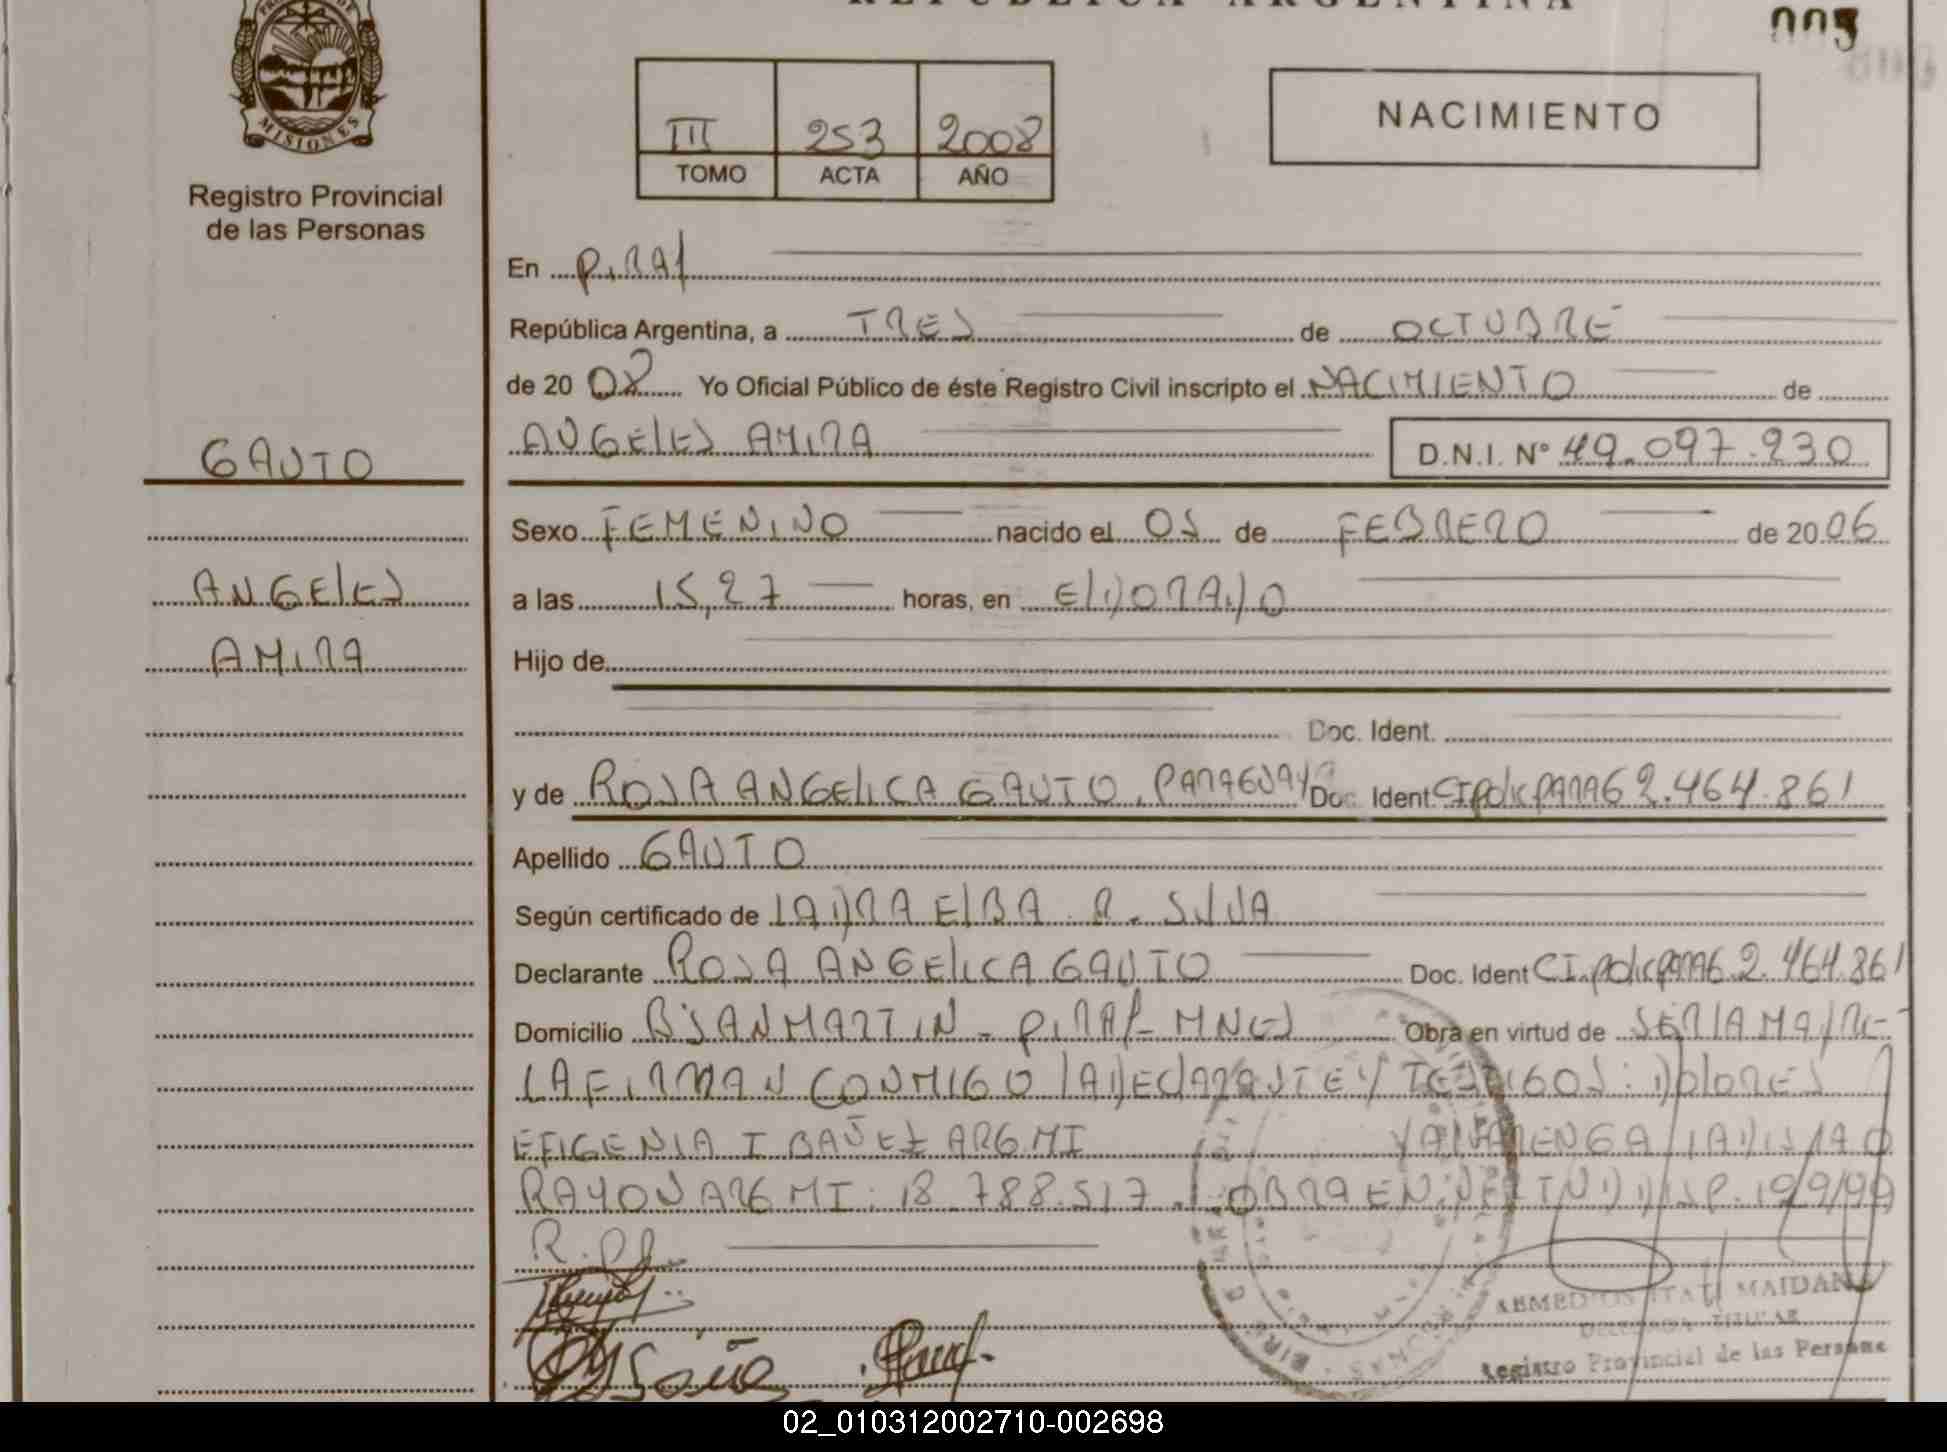 REPUBLICA ARGENTINA
005
MISIONES
Registro Provincial
de las Personas
III 253 2008
TOMO ACTA AÑO
NACIMIENTO
En PIRAY
República Argentina, a TRES de OCTUBRE
de 20 08 Yo Oficial Público de éste Registro Civil inscripto el NACIMIENTO de
ANGELES AMIRA D.N.I. Nº 49.097.930
GAUTO
ANGELES
AMIRA
Sexo FEMENINO nacido el 05 de FEBRERO de 20 06
a las 15,27 horas, en ELDORADO
Hijo de
Doc. Ident.
y de ROSA ANGELICA GAUTO, PARAGUAYA Doc. Ident CI POLIC PARAG 2.464.861
Apellido GAUTO
Según certificado de LADRA ELBA R. SILVA
Declarante ROSA ANGELICA GAUTO Doc. Ident CI. POLIC PARAG 2.464.861
Domicilio Bº SAN MARTIN - PIRAY - MNES Obra en virtud de SER LA MADRE
LA FIRMAN CONMIGO LA DECLARANTE Y TESTIGOS: DOLORES
EFIGENIA IBAÑEZ ARG MI LADISLAO
RAYON ARG MI: 18.788.517. OBRA EN DISP. 199/99
R.P.P.
MAIDANA
DELEGADA TITULAR
Registro Provincial de las Personas
02_010312002710-002698